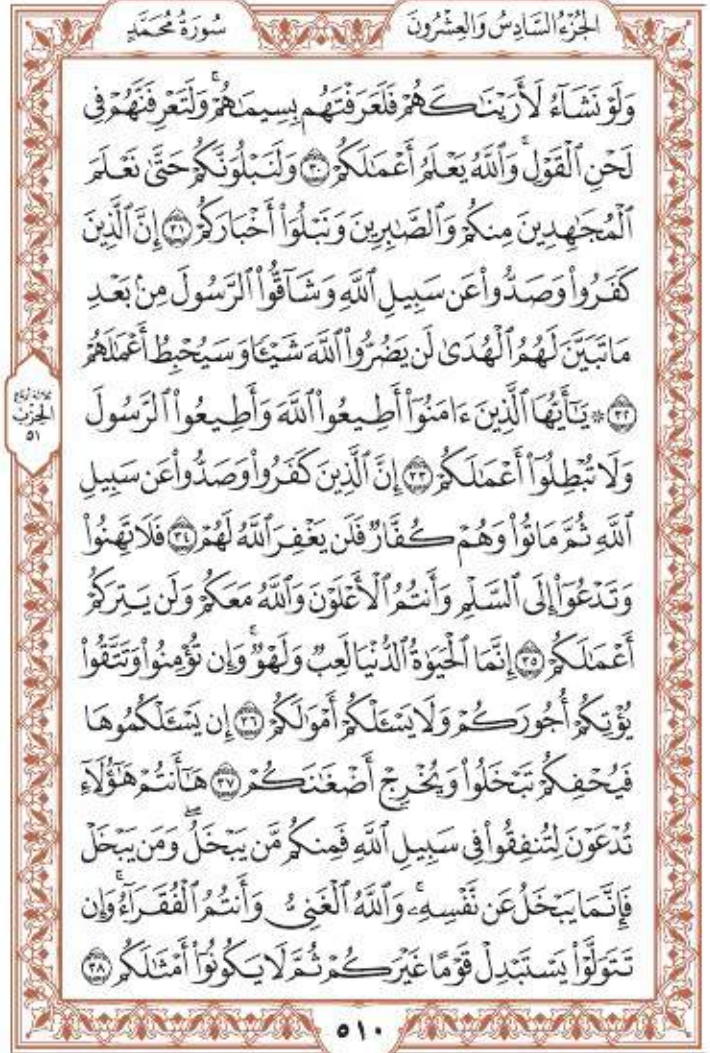 الجُزْءُ السَّادِسُ وَالعِشْرُونَ
سُورَةُ مُحَمَّدٍ
وَلَوْ نَشَآءُ لَأَرَيْنَٰكَهُمْ فَلَعَرَفْتَهُم بِسِيمَٰهُمْۚ وَلَتَعْرِفَنَّهُمْ فِى
لَحْنِ ٱلْقَوْلِۚ وَٱللَّهُ يَعْلَمُ أَعْمَٰلَكُمْ ٣٠ وَلَنَبْلُوَنَّكُمْ حَتَّىٰ نَعْلَمَ
ٱلْمُجَٰهِدِينَ مِنكُمْ وَٱلصَّٰبِرِينَ وَنَبْلُوَا۟ أَخْبَارَكُمْ ٣١ إِنَّ ٱلَّذِينَ
كَفَرُوا۟ وَصَدُّوا۟ عَن سَبِيلِ ٱللَّهِ وَشَآقُّوا۟ ٱلرَّسُولَ مِنۢ بَعْدِ
مَا تَبَيَّنَ لَهُمُ ٱلْهُدَىٰ لَن يَضُرُّوا۟ ٱللَّهَ شَيْـًٔا وَسَيُحْبِطُ أَعْمَٰلَهُمْ
٣٢ ۞ يَٰٓأَيُّهَا ٱلَّذِينَ ءَامَنُوٓا۟ أَطِيعُوا۟ ٱللَّهَ وَأَطِيعُوا۟ ٱلرَّسُولَ
وَلَا تُبْطِلُوٓا۟ أَعْمَٰلَكُمْ ٣٣ إِنَّ ٱلَّذِينَ كَفَرُوا۟ وَصَدُّوا۟ عَن سَبِيلِ
ٱللَّهِ ثُمَّ مَاتُوا۟ وَهُمْ كُفَّارٌ فَلَن يَغْفِرَ ٱللَّهُ لَهُمْ ٣٤ فَلَا تَهِنُوا۟
وَتَدْعُوٓا۟ إِلَى ٱلسَّلْمِ وَأَنتُمُ ٱلْأَعْلَوْنَ وَٱللَّهُ مَعَكُمْ وَلَن يَتِرَكُمْ
أَعْمَٰلَكُمْ ٣٥ إِنَّمَا ٱلْحَيَوٰةُ ٱلدُّنْيَا لَعِبٌ وَلَهْوٌۚ وَإِن تُؤْمِنُوا۟ وَتَتَّقُوا۟
يُؤْتِكُمْ أُجُورَكُمْ وَلَا يَسْـَٔلْكُمْ أَمْوَٰلَكُمْ ٣٦ إِن يَسْـَٔلْكُمُوهَا
فَيُحْفِكُمْ تَبْخَلُوا۟ وَيُخْرِجْ أَضْغَٰنَكُمْ ٣٧ هَٰٓأَنتُمْ هَٰٓؤُلَآءِ
تُدْعَوْنَ لِتُنفِقُوا۟ فِى سَبِيلِ ٱللَّهِ فَمِنكُم مَّن يَبْخَلُۖ وَمَن يَبْخَلْ
فَإِنَّمَا يَبْخَلُ عَن نَّفْسِهِۦۚ وَٱللَّهُ ٱلْغَنِىُّ وَأَنتُمُ ٱلْفُقَرَآءُۚ وَإِن
تَتَوَلَّوْا۟ يَسْتَبْدِلْ قَوْمًا غَيْرَكُمْ ثُمَّ لَا يَكُونُوٓا۟ أَمْثَٰلَكُم ٣٨
ثلاثة أرباع
الحِزْب
٥١
٥١٠